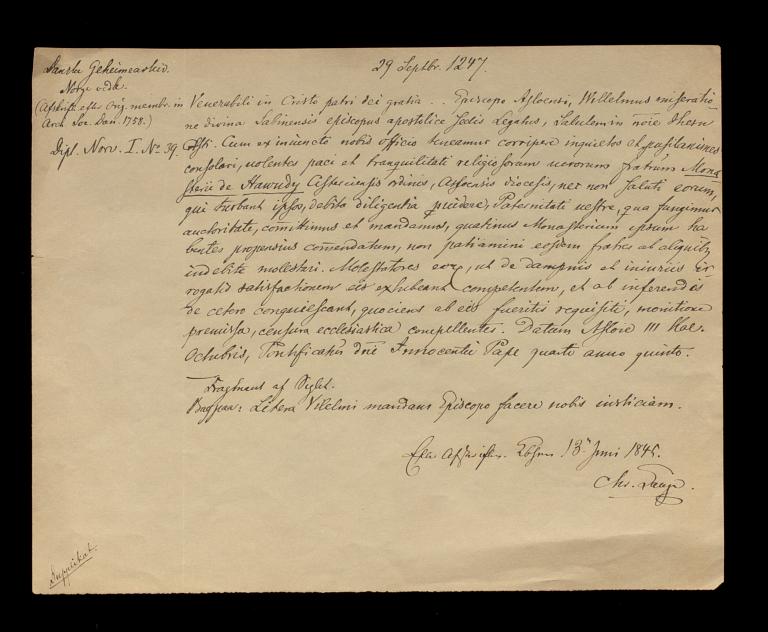 Danske Geheimearkiv.
29 Septbr. 1247.
Norge vedk.
(Afskrift efter Orig. membr. in
Arch. Soc. Dan. 1758.)
Dipl. Norv. I. No. 39.
Venerabili in Cristo patri dei gratia . . Episcopo Asloensi, Willelmus miseratio
ne divina Sabinensis episcopus apostolice Sedis Legatus, Salutem in nōie Ihesu
Cristi. Cum ex iniuncto nobis officio teneamur corripere inquietos et pusilanimes
consolari, uolentes paci et tranquilitati religiosorum uirorum fratrum Mona
sterii de Hawudøy Cisterciensis ordinis, Asloensis diocesis, nec non saluti eorum,
qui turbant ipsos, debita diligentia prouidere, Paternitati uestre, qua fungimur
auctoritate, cōmittimus et mandamus, quatinus Monasterium ipsum ha
bentes propensius comendatum, non patiamini eosdem fratres ab aliquibus
indebite molestari. Molestatores eorum, ut de dampnis et iniuriis ir
rogatis satisfactionem eis exhibeant competentem, et ab inferendis
de cetero conquiescant, quociens ab eis fueritis requisiti, monitione
premissa, censura ecclesiastica compellentes. Datum Asloie III Kal.
Octubris, Pontificatus dni Innocentii Pape quarti anno quinto.
Fragment af Seglet.
Bagpaa: Litera Vilelmi mandans Episcopo facere nobis iusticiam.
Exa Kbhvn 13 Juni 1845.
Chr. Lange.
Duplikat.